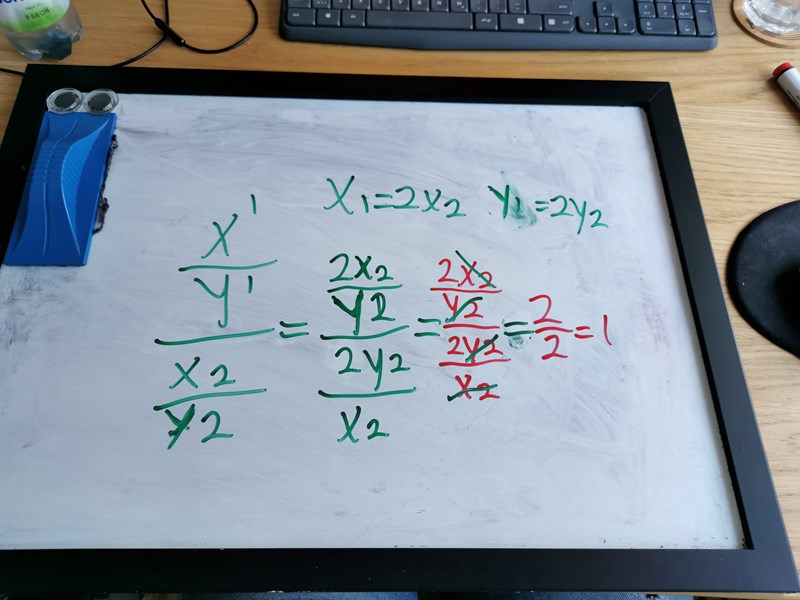 X₁=2X₂ Y₁=2Y₂
X¹/Y¹ / X2/Y2 = 2X2/Y2 / 2Y2/X2 = 2X2/Y2 / 2Y2/X2 = 2/2 = 1